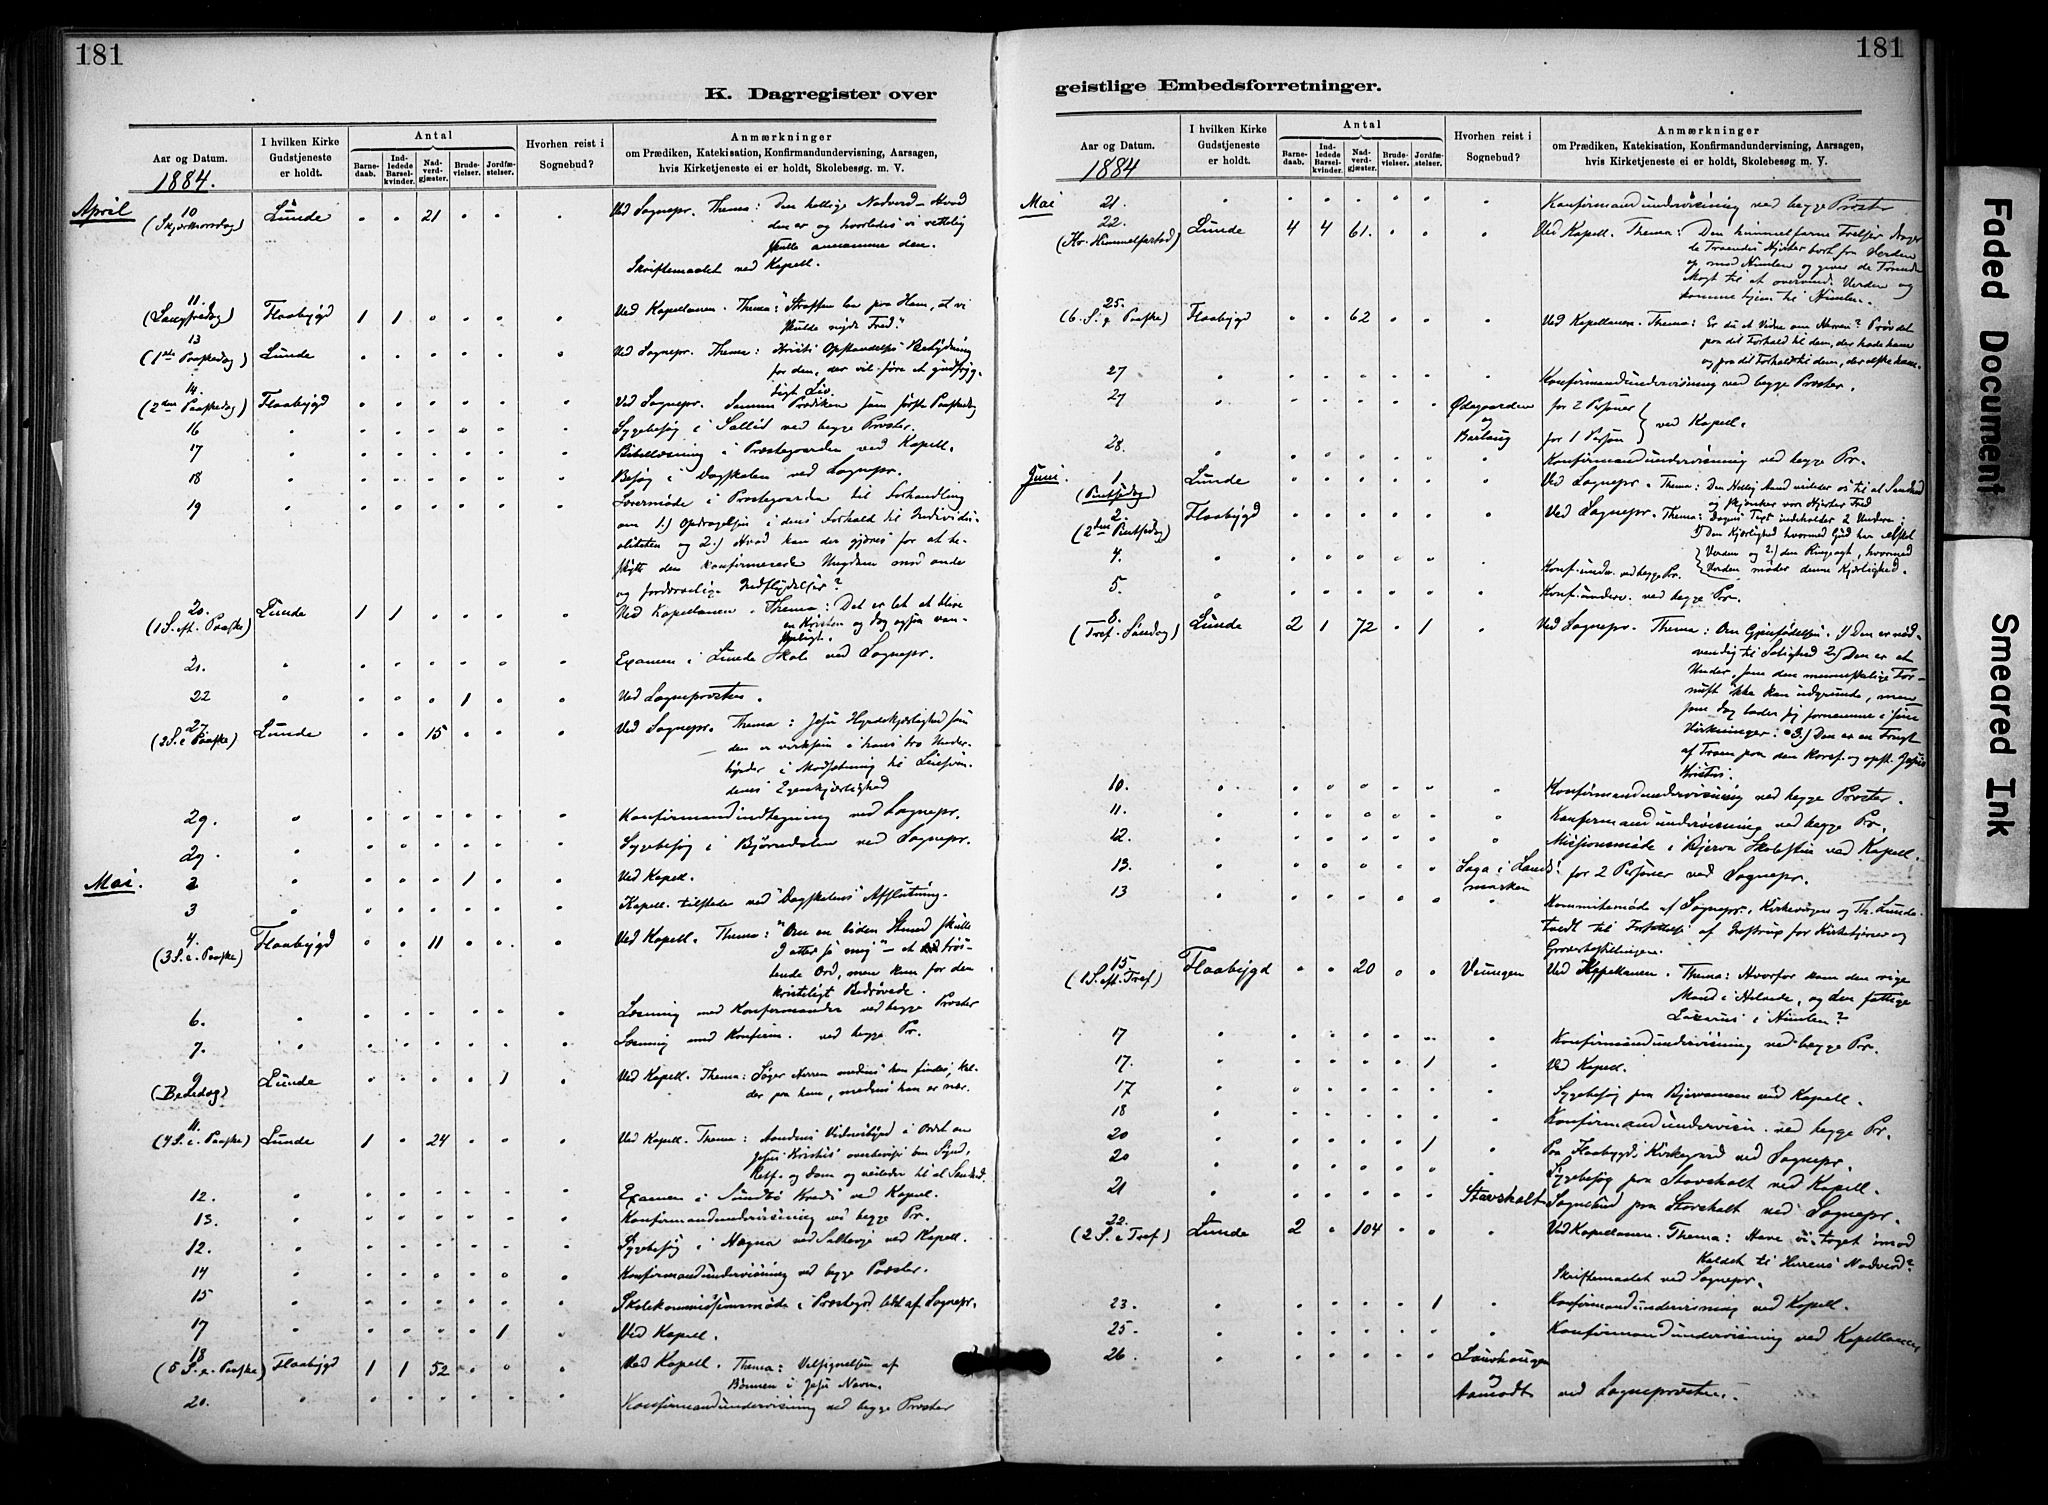 181
K. Dagregister over
Aar og Datum.
1884.
I hvilken Kirke Gudstjeneste er holdt.
Antal
Barnedaab.
Indledede Barselkvinder.
Nadverdgjæster.
Brudevielser.
Jordfæstelser.
Hvorhen reist i Sognebud?
Anmærkninger
om Prædiken, Katekisation, Konfirmandundervisning, Aarsagen,
hvis Kirketjeneste ei er holdt, Skolebesøg m. V.
April 10 (Skjærthorsdag) Lunde " " 21 " " " Ved Sognepr. Thema: Den hellige Nadverd – Hvad
den er og hvorledes vi rettelig
skulle anamme den.
Skriftemaalet ved Kapell.
11 (Langfredag) Flaabygd 1 1 " " " " Ved Kapellanen. Thema: "Straffen laa paa Ham, at vi
skulde nyde Fred."
13 (1ste Paaskedag) Lunde " " " " " " Ved Sognepr. Thema: Kristi Opstandelses Betydning
for den, der vil føre et gudfryg-
tigt Liv.
14. (2den Paaskedag) Flaabygd " " " " " " Ved Sognepr. Samme Prædiken som første Paaskedag
16 " " " " " " " Sygebesøg i ved begge Præster.
17 " " " " " " " Bibellæsning i Præstegaarden ved Kapell.
18 " " " " " " " Besøg i Dagskolen ved Sognepr.
19 " " " " " " " Læremøde i Præstegaarden til Forhandling
om 1.) Opdragelsen i dens Forhold til Individu-
aliteten og 2.) Hvad kan der gjøres for at be-
skytte den konfirmerede Ungdom mod onde
og fordærvelige Indflydelser?
20. (1 S. eft. Paaske) Lunde 1 1 " " " " Ved Kapellanen. Thema: Det er let at blive
en Kristen og dog ogsaa van-
skeligt.
21. " " " " " " " Examen i Lunde Skole ved Sognepr.
22 " " " " 1 " " Ved Sognepræsten.
27 (2 S. e. Paaske) Lunde " " 15 " " " Ved Sognepr. Thema: Jesu Hyrdekjærlighed som
den er virksom i hans tro Under-
hyrder i Modsætning til Leiesven-
denes Egenkjærlighed
29. " " " " " " " Konfirmandindtegning ved Sognepr.
29. " " " " " " " Sygebesøg i Bjørndalen ved Sognepr.
Mai. 2 " " " " 1 " " Ved Kapell.
3 " " " " " " " Kapell. tilstede ved "Dagskolens" Afslutning.
4. (3 S. e. Paaske) Flaabygd " " 11 " " " Ved Kapell. Thema: "Om en liden Stund skulle
I atter se mig" – et trøs-
tende Ord, men kun for den
kristeligt Bedrøvede.
6. " " " " " " " Læsning med Konfirmander ved begge Præster
7. " " " " " " " Læsning med Konfirm. ved begge Pr.
9 (Bededag) Lunde " " " " 1 " Ved Kapell. Thema: Søger Herren medens han findes, kal-
der paa ham, medens han er nær.
11. (4 S. e. Paaske) Lunde 1 " 24 " " " Ved Kapell. Thema: Aandens Vidnesbyrd i Ordet om
Jesus Kristus overbeviser om Synd,
Retf. og Dom og veileder til al Sandhed.
12. " " " " " " " Examen i Sundbø Kreds ved Kapell.
13. " " " " " " " Konfirmandundervisning ved begge Pr.
12. " " " " " " " Sygebesøg i Hægna ved ved Kapell.
14 " " " " " " " Konfirmandundervisning ved begge Præster.
15 " " " " " " " Skolekommissionsmøde i Præstegd. af Sognepr.
17 " " " " " 1 " Ved Kapell.
18 (5 S. e. Paaske) Flaabygd 1 1 52 " " " Ved Kapell. Thema: Velsignelsen af
Bønnen i Jesu Navn.
20. " " " " " " " Konfirmandundervisning ved begge Præster
181
geistlige Embedsforretninger.
Aar og Datum.
1884
I hvilken Kirke Gudstjeneste er holdt.
Antal
Barnedaab.
Indledede Barselkvinder.
Nadverdgjæster.
Brudevielser.
Jordfæstelser.
Hvorhen reist i Sognebud?
Anmærkninger
om Prædiken, Katekisation, Konfirmandundervisning, Aarsagen,
hvis Kirketjeneste ei er holdt, Skolebesøg m. V.
Mai 21. " " " " " " " Konfirmandundervisning ved begge Præster
22. (Kr. Himmelfartsd) Lunde 4 4 61. " " " Ved Kapell. Thema: Den himmelfarne Frelser drager
de Troendes Hjerter bort fra Verden
op mod Himlen og giver de Troende
Magt til at overvinde Verden og
komme hjem til Himlen.
25. (6. S. e. Paaske) Flaabygd " " 62 " " " Ved Kapellanen. Thema: Er du et Vidne om Herren? Prøv det
paa dit Forhold til dem, der hade ham
og paa dit Forhold til dem, der elske ham.
27 " " " " " " " Konfirmandundervisning ved begge Præster.
27 " " " " " Ødegaarden for 2 Personer
og ved Kapell.
Barlaug for 1 Person
28. " " " " " " " Konfirmandundervisning ved begge Pr.
Juni 1. (Pintsedag) Lunde " " " " " " Ved Sognepr. Thema: Den Hellig Aand veileder os til al Sandhed
og skjænker vore Hjerter Fred
2. (2den Pintsedag) Flaabygd " " " " " " Ved Sognepr. Thema: Dagens Text indeholder 2 Undere:
1) Den Kjærlighed hvormed Gud har elsket
Verden og 2.) den Ringeagt, hvormed
Verden møder denne Kjærlighed.
4. " " " " " " " Konf.underv. ved begge Pr.
5. " " " " " " " Konf.underv. ved begge Pr.
8. (Tref. Søndag) Lunde 2 1 72 " 1 " Ved Sognepr. Thema: Om Gjenfødelsen. 1) Den er nød-
vendig til Salighed 2) Den er et
Under, som den menneskelige For-
nuft ikke kan udgrunde, men
som dog lader sig fornemme i sine
Virkninger: 3.) Den er en Frugt
af Troen paa den korsf. og opst. Jesus
Kristus.
10. " " " " " " " Konfirmandundervisning ved begge Præster.
11. " " " " " " " Konfirmandundervisning ved begge Pr.
12. " " " " " " " Missionsmøde i Bjerva Skolestue ved Kapell.
13. " " " " " Saga i Lands- for 2 Personer ved Sognepr.
marken
13 " " " " " " " Kommitemøde af Sognepr., Kirkeværgen og Th. Lunde-
tvedt til Forfattelse af Instrux for Kirketjener og
Graverbestillingen.
15. (1 S. eft. Tref) Flaabygd " " 20 " " Veungen Ved Kapellanen. Thema: Hvorfor kom den rige
Mand i Helvede, og den fattige
Lazarus i Himlen?
17 " " " " " " " Konfirmandundervisning ved begge Pr.
17. " " " " " 1 " Ved Kapell.
17 " " " " " " " Sygebesøg paa Bjervamoen ved Kapell.
18 " " " " " " " Konfirmandundervisn. ved begge Pr.
20 " " " " " 1 " Paa Flaabygds Kirkegaard ved Sognepr.
20 " " " " " " " Sygebesøg paa Stavsholt ved Kapell.
21 " " " " " " Stavsholt Sognebud paa Stavsholt ved Sognepr.
22. (2 S. e. Tref) Lunde 2 " 104 " " " Ved Kapellanen. Thema: Have vi taget imod
Kaldet til Herrens Nadverd?
Skriftemaalet ved Sognepr.
23. " " " " " 1 " Konfirmandundervisning ved Kapell.
25. " " " " " " " Konfirmandundervisning ved Kapellanen
26 " " " " " Laushaugen
og
Aamodt ved Sognepræsten.
Faded Document
Smeared Ink